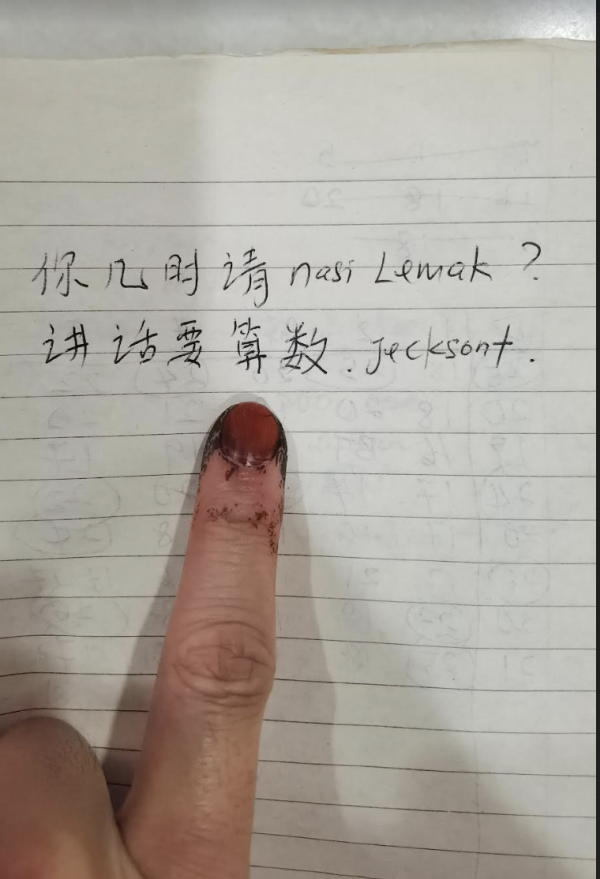 你几时请 nasi Lemak ?
讲话要算数. Jecksont.